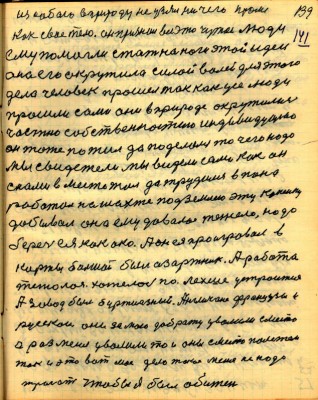 из кабаль в природу не узяли ничего кроме 139
Как свае тело. он принял все это чужие люди 141
ему помогли стать на ноги этой идеи
она его окрутила силой волей для этого
дела человек прошел так как уси люди
прошли сами они в природе окружили
частно собственностью индивидуально
он тоже потил да поделал то чего надо
мы свидетели мы видели сами как он
с нами вместе жил да трудился в пана
работал на шахте под землею эту копейку
добывал она ему давала тяжело надо
беречся как око. А он ея проигравал в
карты балшой был азартник. А работа
тяжолая хотелось по легше устроится
А завод был бартичний. Англичани французы и
русския они за мою доброту уволили с места
а раз меня уволили то и они с места полетели
так и это вот мое дело тоже меня не надо
трогать чтобы я был обижен